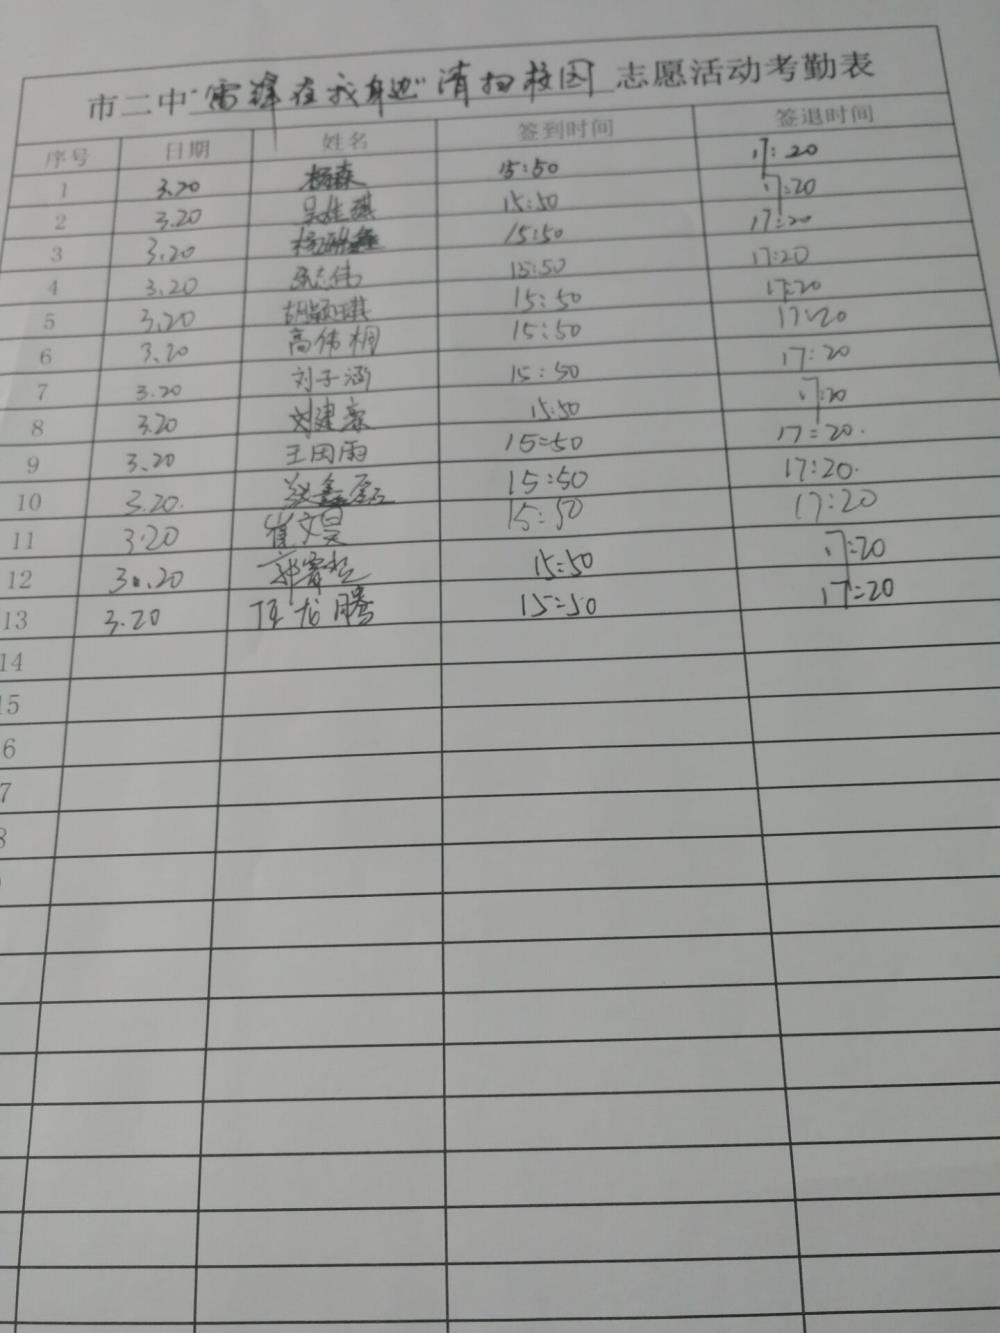 市二中"雷锋在我身边"清扫校园 志愿活动考勤表
序号 日期 姓名 签到时间 签退时间
1 3.20 杨森 15:50 17:20
2 3.20 吴佳琪 15:50 17:20
3 3.20 15:50 17:20
4 3.20 张志伟 15:50 17:20
5 3.20 胡颖琪 15:50 17:20
6 3.20 高伟桐 15:50 17:20
7 3.20 刘子涵 15:50 17:20
8 3.20 刘建豪 15:50 17:20
9 3.20 王因雨 15:50 17:20.
10 3.20. 15:50 17:20.
11 3.20 崔文昊 15:50 17:20
12 3.20 15:50 17:20
13 3.20 龙腾 15:50 17:20
14
15
6
7
8